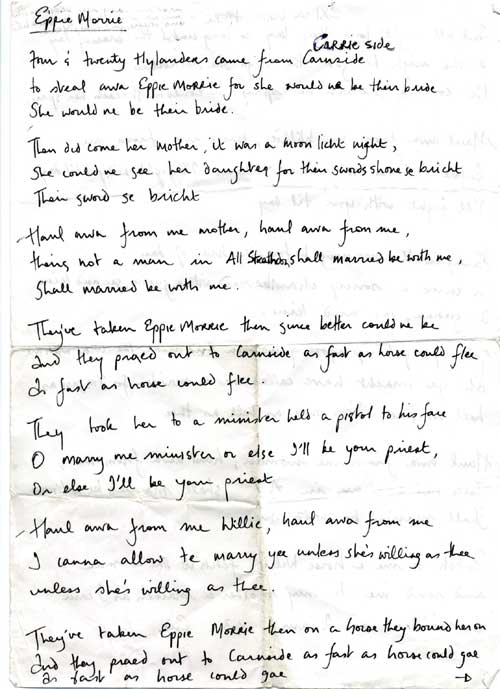 Eppie Morrie
CARRIE SIDE
Four & twenty Hylanders came from Carnside
to steal awa Eppie Morrie for she would ne be their bride
She would ne be their bride.
Then did come her mother, it was a moon licht night,
She could ne see her daughter for their swords shone se bricht
Their sword se bricht
Haul awa from me mother, haul awa from me,
theirs not a man in All Strathdon, shall married be with me,
Shall married be with me.
They've taken Eppie Morrie then since better could ne be
and they praed out to Carnside as fast as horse could flee
As fast as horse could flee.
They took her to a minister held a pistol to his face
O marry me minister or else I'll be your priest,
Or else I'll be your priest
Haul awa from me Willie, haul awa from me
I canna allow te marry yee unless she's willing as thee
unless she's willing as thee.
They've taken Eppie Morrie then on a horse they bound her on
and they praed out to Carnside as fast as horse could gae
as fast as horse could gae